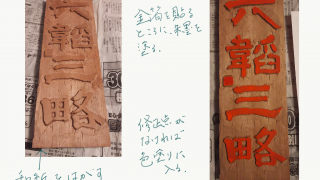 六韜三略
金箔を貼る
ところに、朱墨を
塗る。
修正点が
なければ
色塗りに
入る。
和紙をはがす
六韜三略